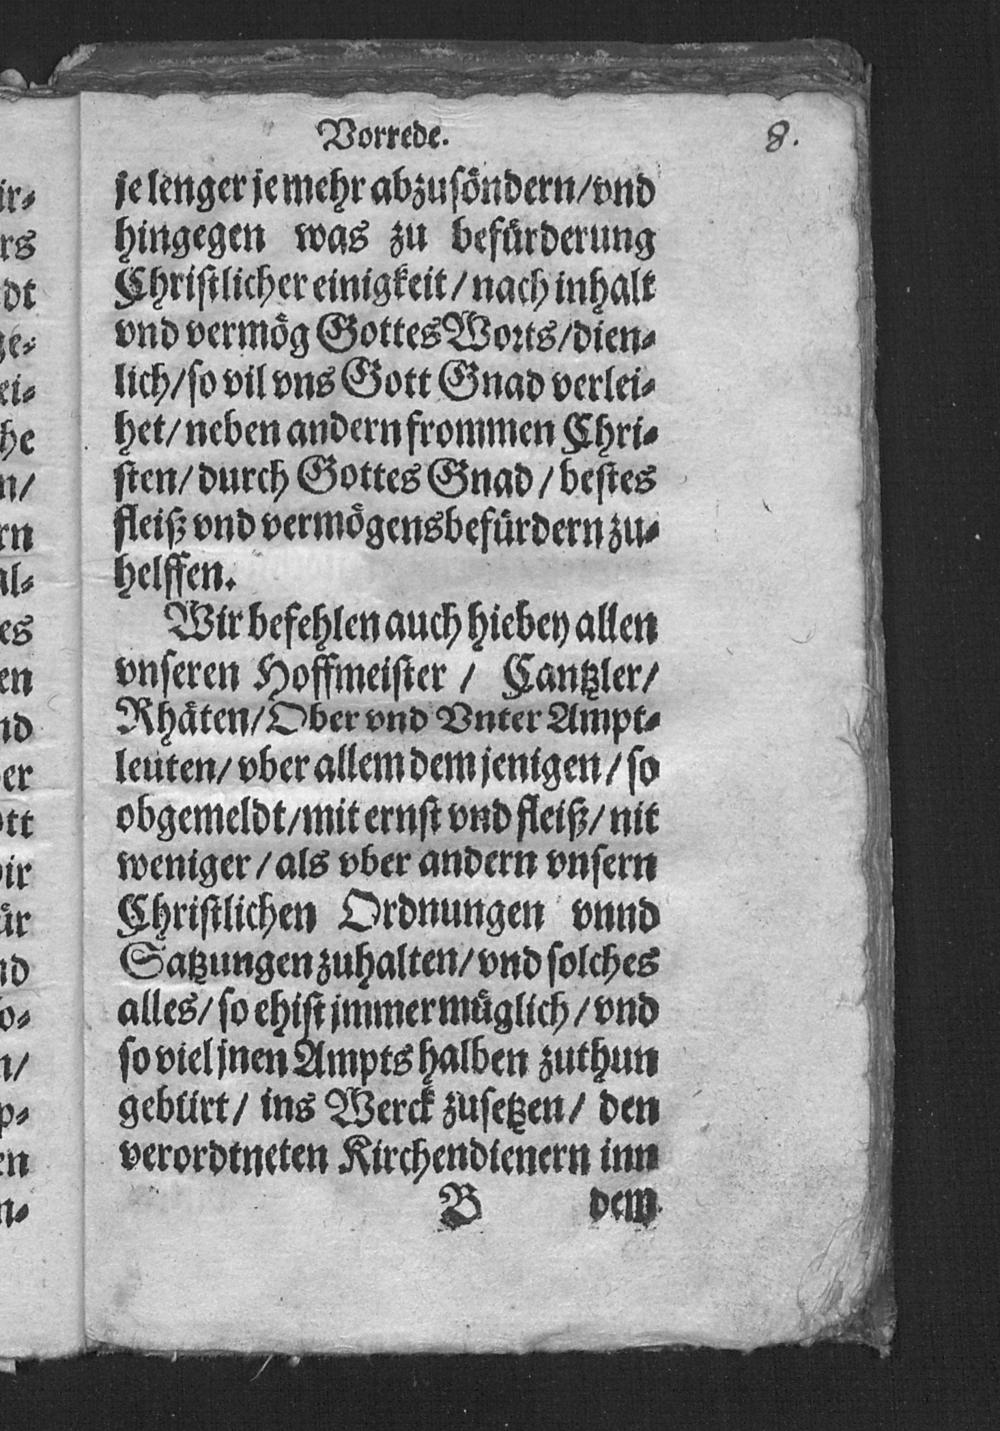 Vorrede.
8.
je lenger je mehr abzusöndern/vnd
hingegen was zu befürderung
Christlicher einigkeit/nach inhalt
vnd vermög Gottes Worts/dien-
lich/so vil vns Gott Gnad verlei-
het/neben andern frommen Chri-
sten/durch Gottes Gnad/bestes
fleiß vnd vermögens befürdern zu-
helffen.
Wir befehlen auch hiebey allen
vnseren Hoffmeister/ Cantzler/
Rhäten/Ober vnd Vnter Ampt-
leuten/vber allem demjenigen/so
obgemeldt/mit ernst vnd fleiß/nit
weniger/als vber andern vnsern
Christlichen Ordnungen vnnd
Satzungen zuhalten/vnd solches
alles/so ehist jmmer müglich/vnd
so viel jnen Ampts halben zuthun
gebürt/ ins Werck zusetzen/ den
verordtneten Kirchendienern inn
B dem
ir-
rs
dt
ge-
ei-
he
n/
rn
al-
es
en
nd
er
ott
ir
ür
nd
o-
n/
p-
en
n-